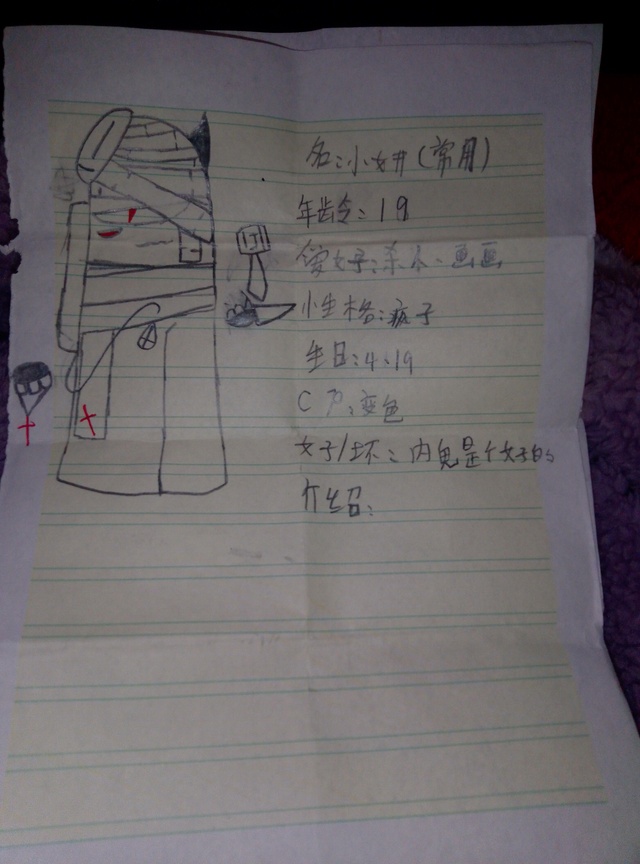 名:小女井(常用)
年龄:19
爱好:杀人、画画
性格:疯子
生日:4.19
CP:变色
好/坏:内鬼是个好的
介绍: